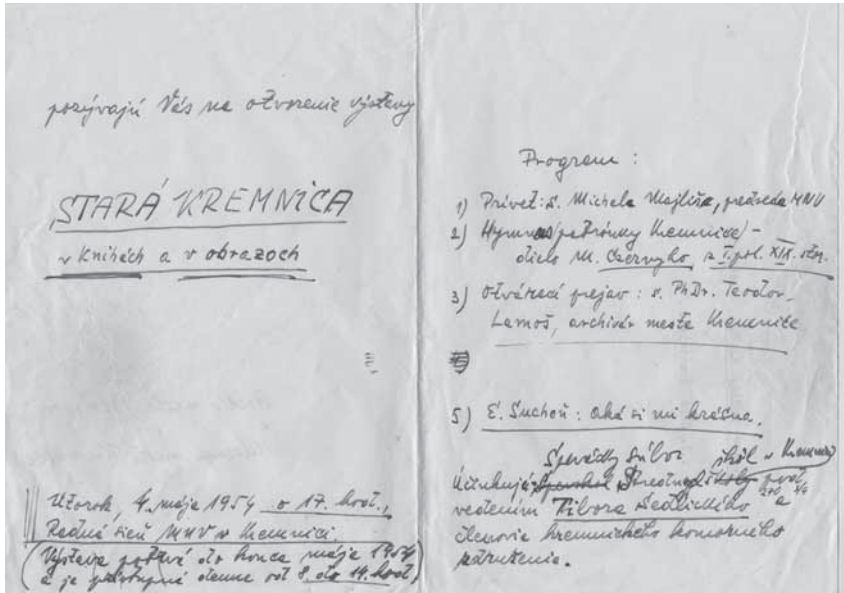 pozývajú Vás na otvorenie výstavy
STARÁ KREMNICA
v knihách a v obrazoch
Utorok, 4. mája 1954 o 17. hod.,
Radná sieň MNV v Kremnici.
(Výstava potrvá do konca mája 1954
a je prístupná denne od 8. do 14. hod.)
Program :
1) Prívet: s. Michala Majliša, predseda MNV
2) Hymnus (patrónky Kremnice) -
dielo M. z I. pol. XIX. stor.
3) Otvárací prejav : s. PhDr. Teodor
Lamoš, archivár mesta Kremnice
5) E. Suchoň : Aká si mi krásna.
Spevácky súbor škôl v Kremnici
Účinkujú: Strednej školy pod
vedením Tibora Sedlického a
členovia kremnického komorného
združenia.